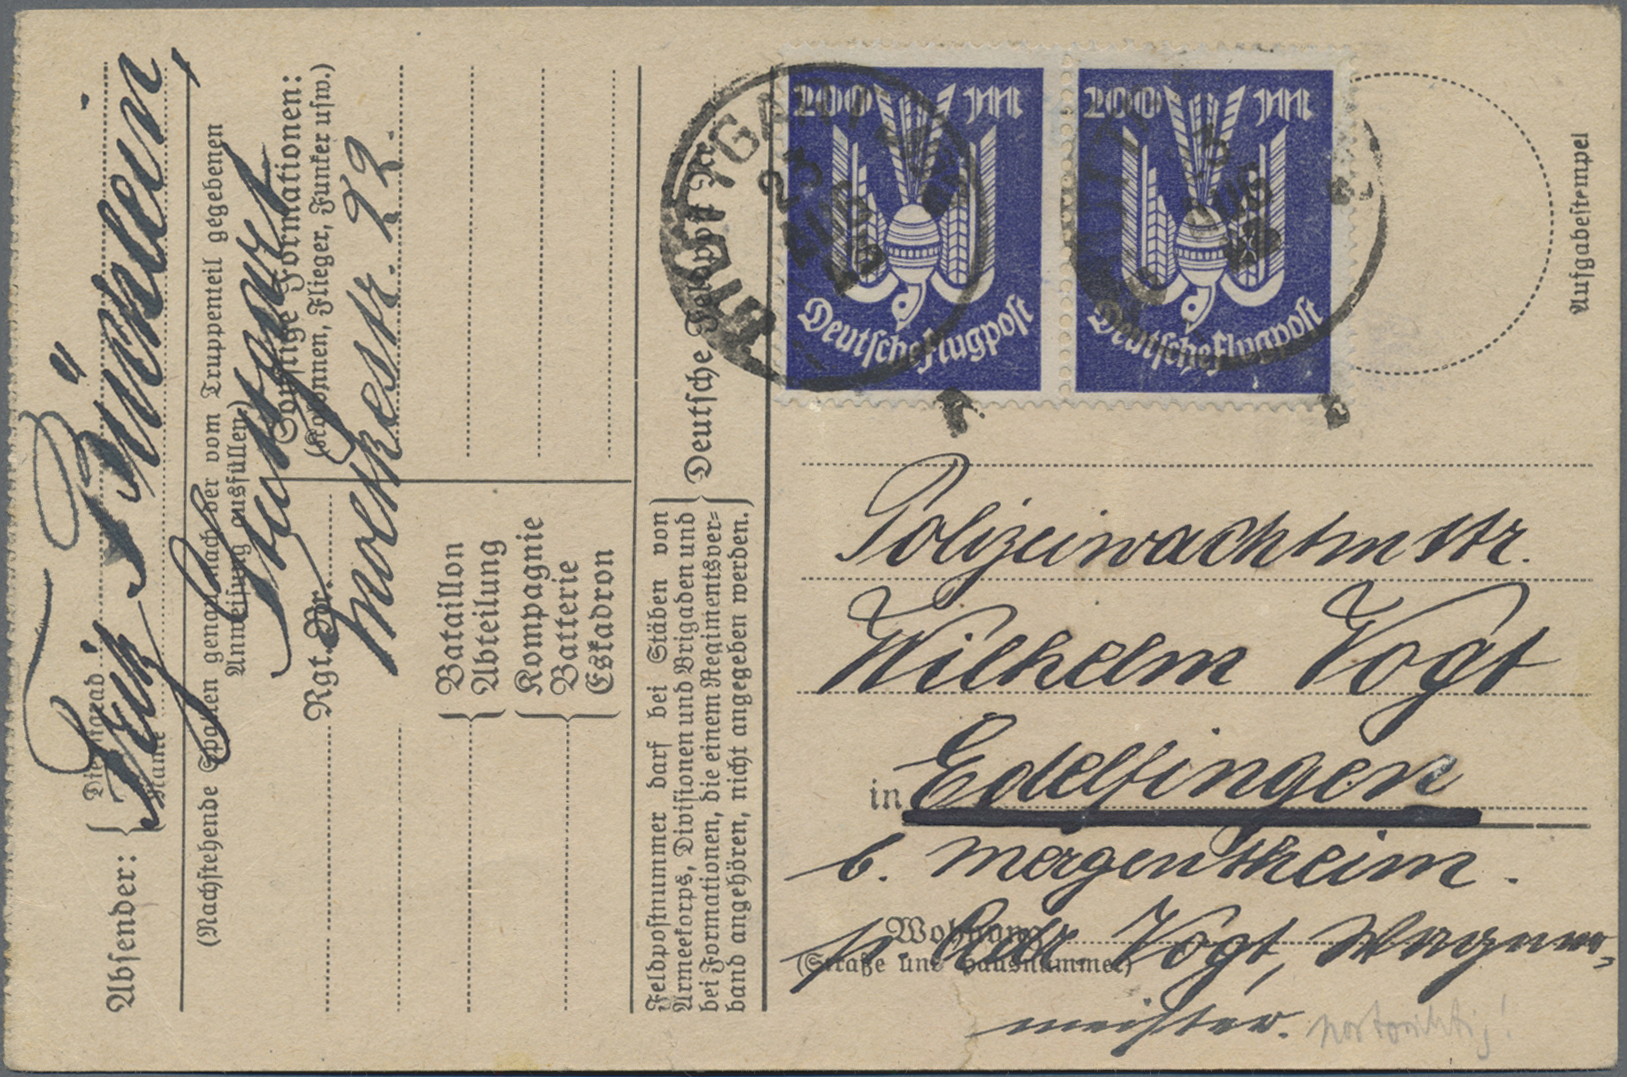 Absender:
Dienstgrad
Name
Fritz Bürklein,
(Nachstehende Spalten genau nach der vom Truppenteil gegebenen
Anweisung ausfüllen)
Stuttgart
Sonstige Formationen:
(Kolonnen, Flieger, Funker usw.)
Rgt. Nr.
Moltkestr. 92.
Bataillon
Abteilung
Kompagnie
Batterie
Eskadron
Feldpostnummer darf bei Stäben von
Armeekorps, Divisionen und Brigaden und
bei Formationen, die einem Regimentsver=
band angehören, nicht angegeben werden.
Deutsche Feldpost Nr.
200 M
Deutsche Flugpost
200 M
Deutsche Flugpost
STUTTGART
23
AUG
Aufgabestempel
Polizeiwachtmstr.
Wilhelm Vogt
in Edelfingen
b. Mergentheim.
Wohnung
(Straße und Hausnummer)
Vogt, Wagner-
meister.
portorichtig!